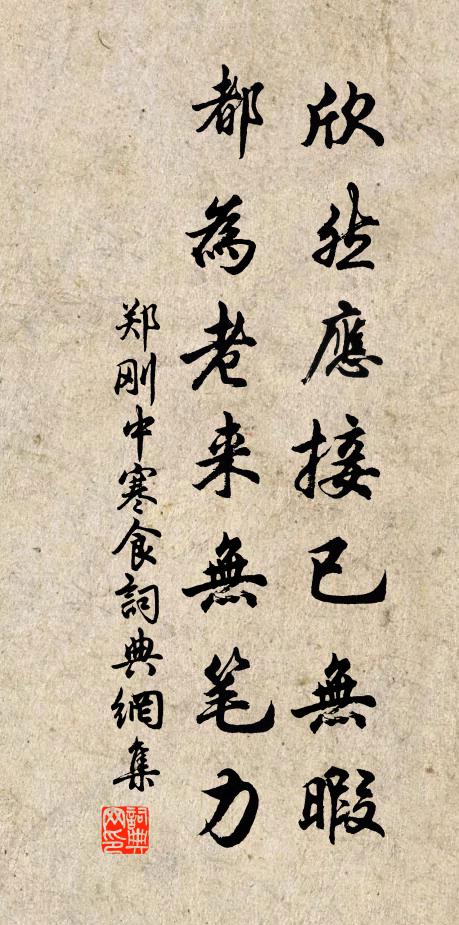 欣然應接已無暇
都為老来無笔力
郑刚中寒食詞典網集
詞典网印